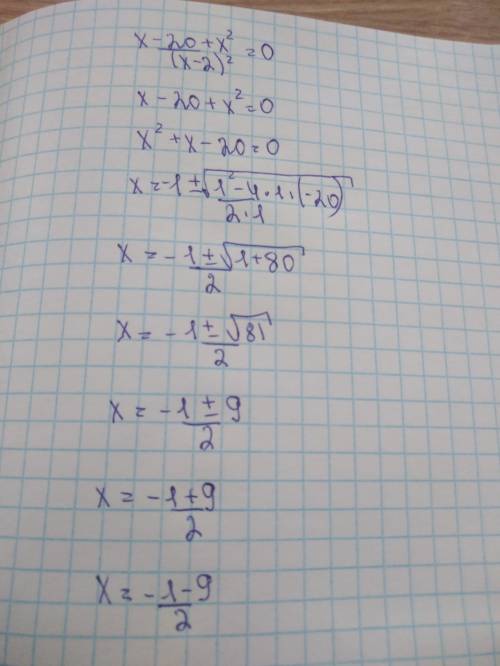 x-20+x²/(x-2)²=0
x-20+x²=0
x²+x-20=0
x=-1±√1²-4·1·(-20)/2·1
x=-1±√1+80/2
x=-1±√81/2
x=-1±9/2
x=-1+9/2
x=-1-9/2